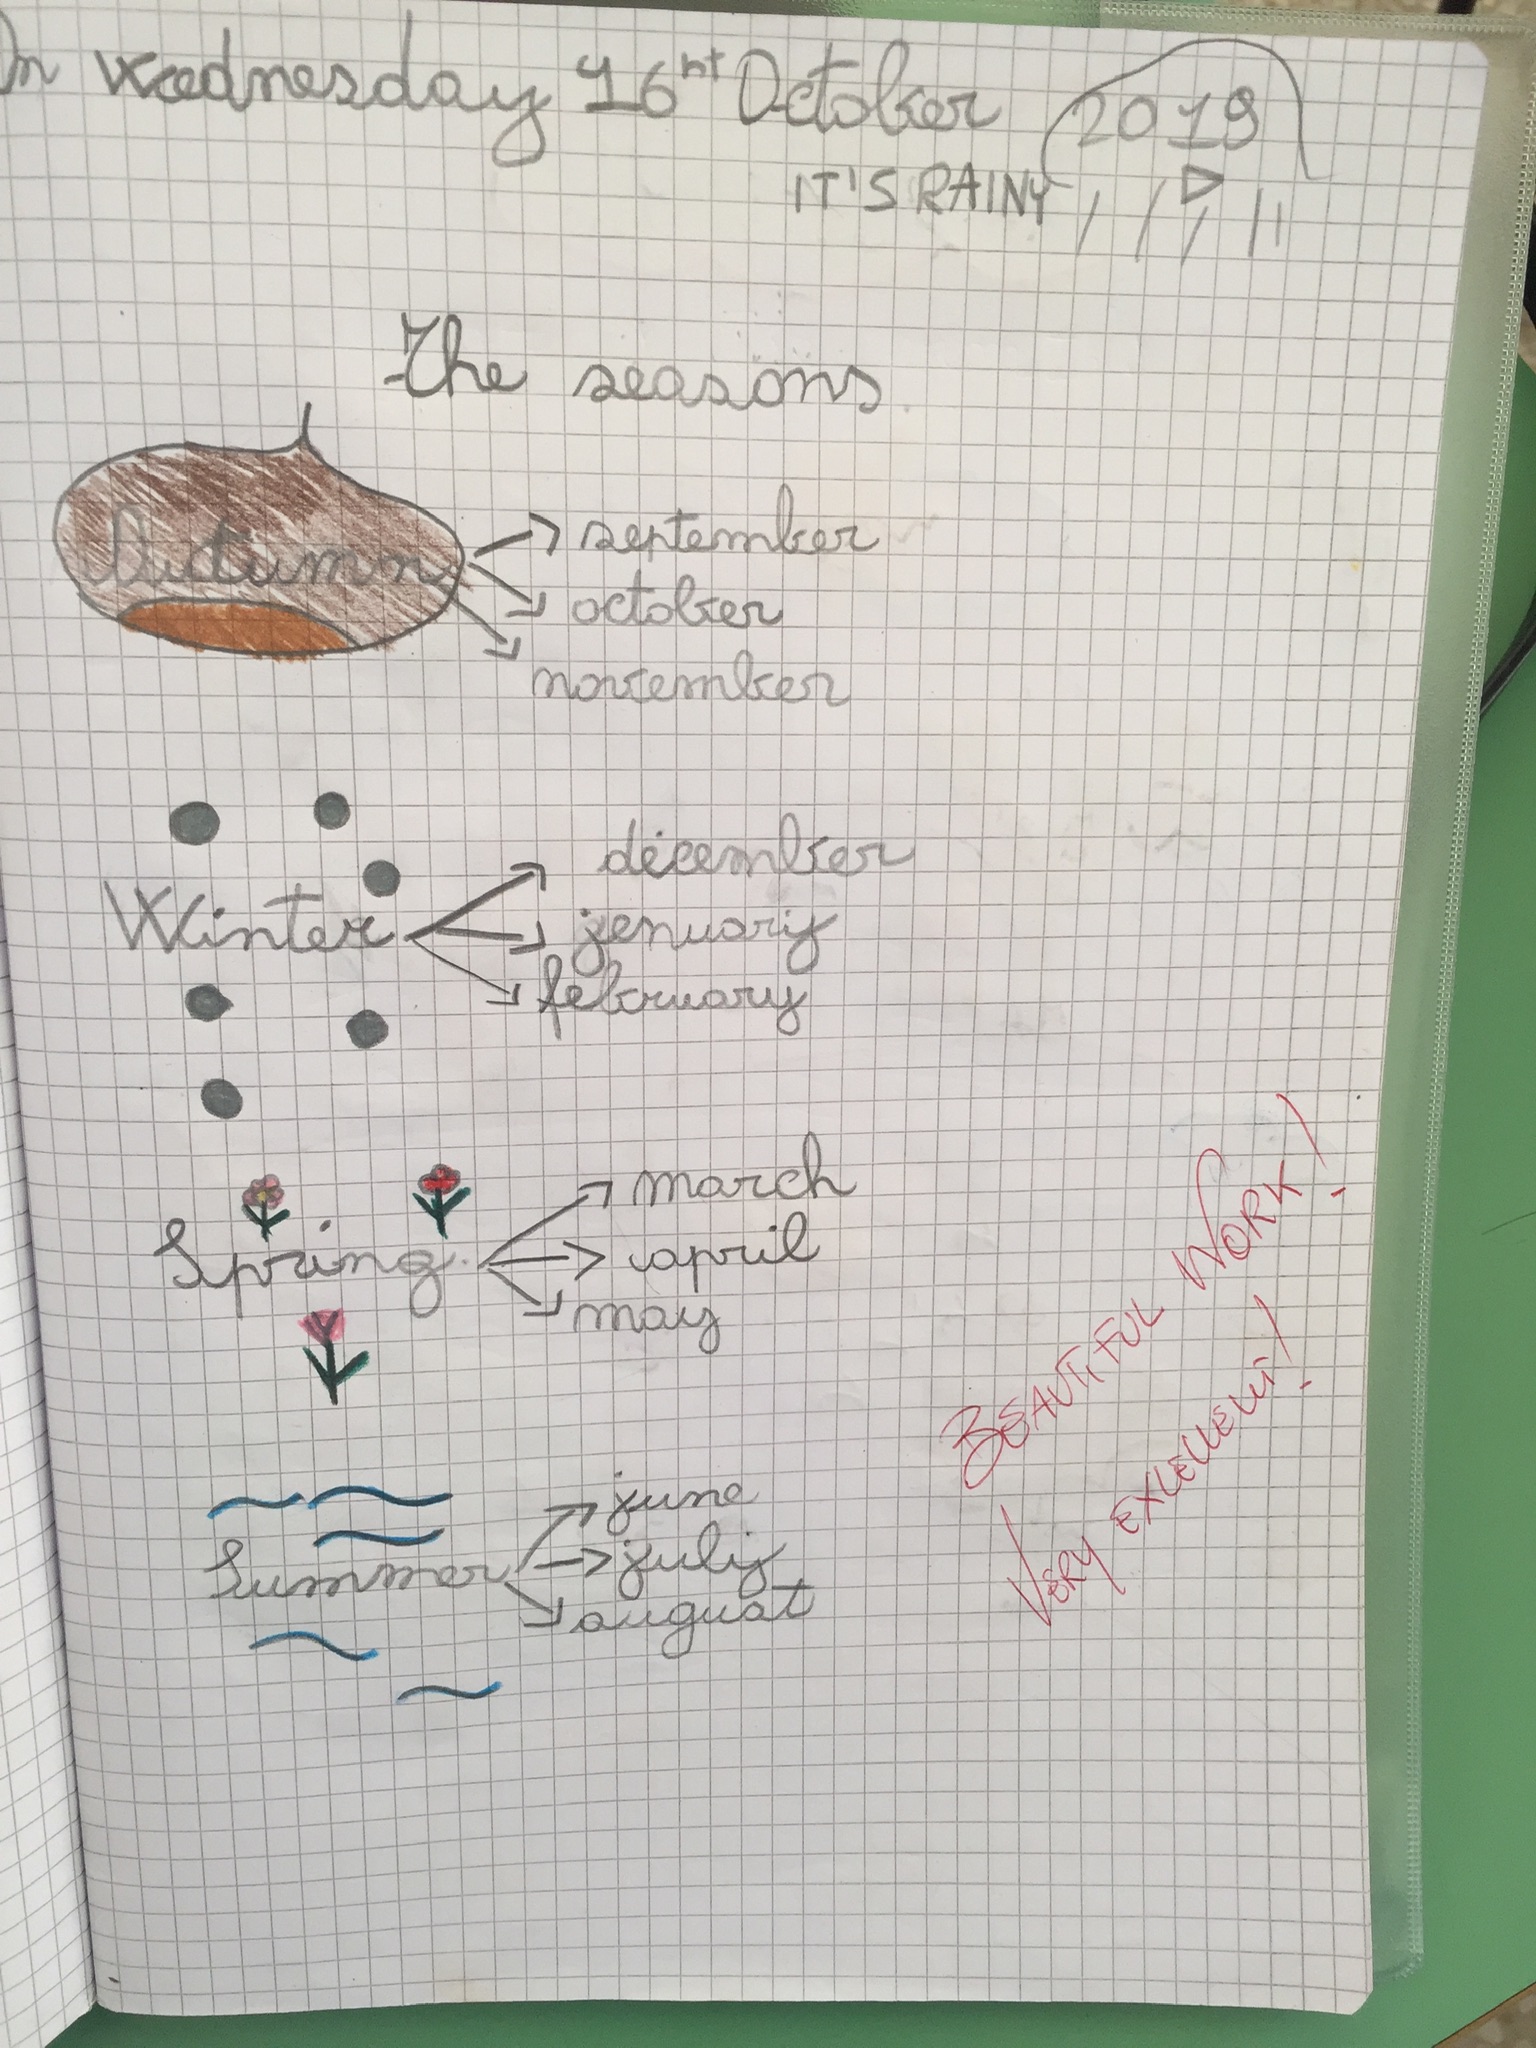 On Wednesday 16nt October 2019
IT'S RAINY
The seasons
Autumn
september
october
november
Winter
december
jenuary
february
Spring
march
april
may
Summer
june
july
august
BEAUTIFUL WORK!
VERY EXCELLENT!